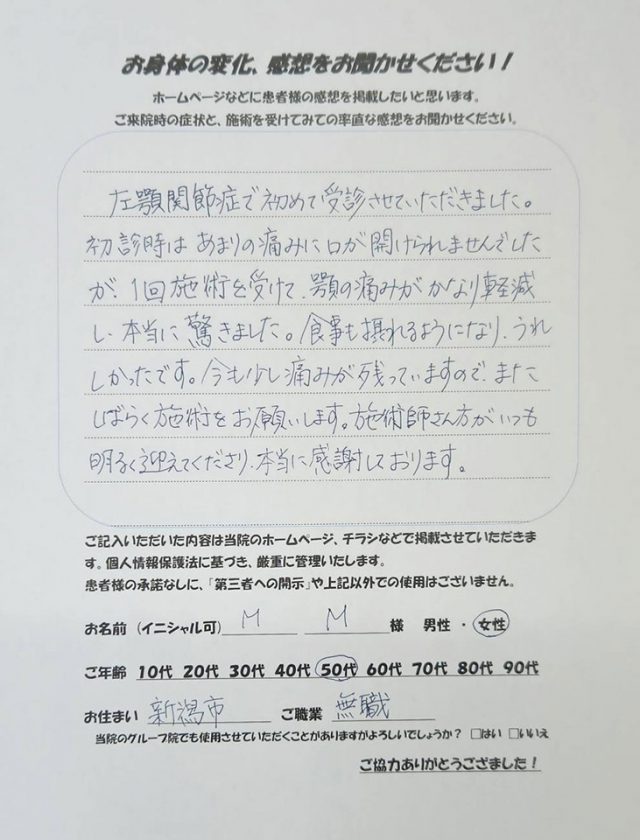 お身体の変化、感想をお聞かせください！
ホームページなどに患者様の感想を掲載したいと思います。
ご来院時の症状と、施術を受けてみての率直な感想をお聞かせください。
左顎関節症で初めて受診させていただきました。
初診時はあまりの痛みに口が開けられませんでした
が、1回施術を受けて、顎の痛みがかなり軽減
し、本当に驚きました。食事も摂れるようになり、うれ
しかったです。今も少し痛みが残っていますので、また
しばらく施術をお願いします。施術師さん方がいつも
明るく迎えてくださり、本当に感謝しております。
ご記入いただいた内容は当院のホームページ、チラシなどで掲載させていただきま
す。個人情報保護法に基づき、厳重に管理いたします。
患者様の承諾なしに、「第三者への開示」や上記以外での使用はございません。
お名前（イニシャル可） M M 様 男性・女性
ご年齢 10代 20代 30代 40代 50代 60代 70代 80代 90代
お住まい 新潟市 ご職業 無職
当院のグループ院でも使用させていただくことがありますがよろしいでしょうか？ □はい □いいえ
ご協力ありがとうござました！